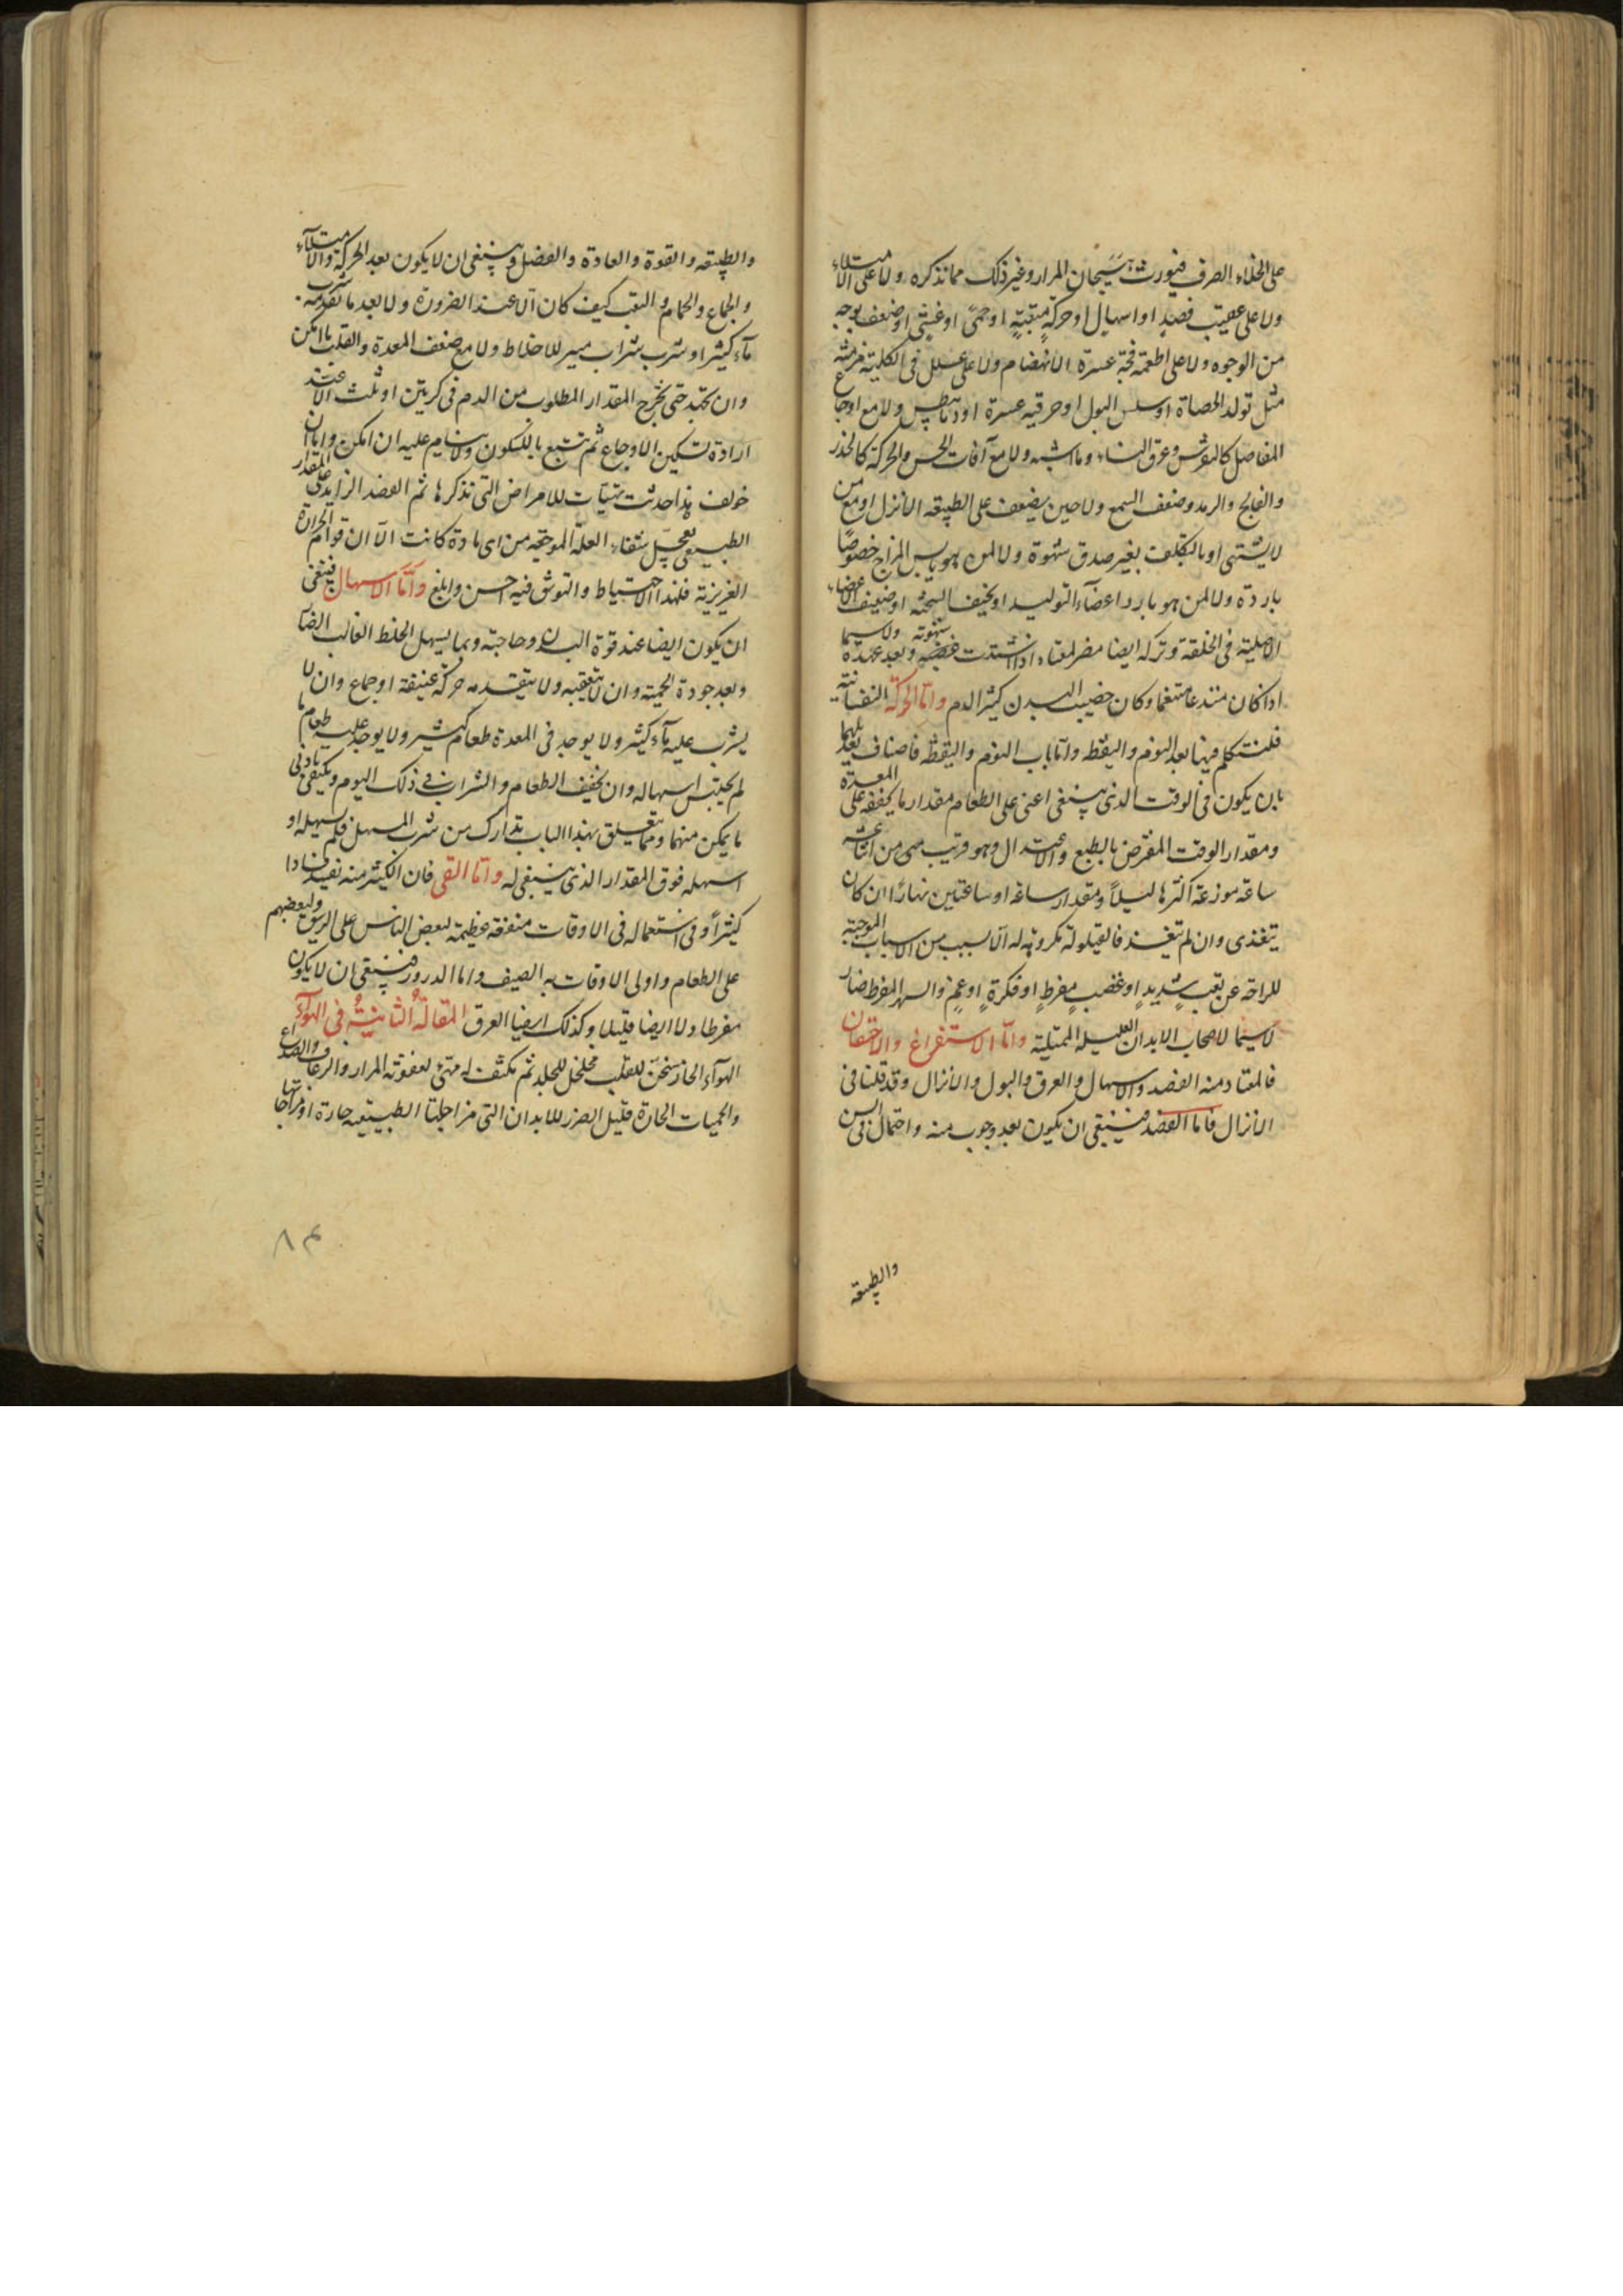 على الخلاء الصرف فيورث هيجان المرار وغير ذلك مما نذكره ولا على الامتلاء
ولا على عقيب فصد او اسهال او حركة متعبة او حمى او غشى او ضعف بوجه
من الوجوه ولا على اطعمة فجة عسرة الانهضام ولا على علل فى الكلية مزمنة
مثل تولد الحصاة او سلس البول او حرقته عسرة او ديابيطس ولا مع اوجاع
المفاصل كالنقرس وعرق النساء وما اشبه ولا مع آفات الحس والحركة كالخدر
والفالج والرمد وضعف السمع ولا حين يضعف على الطبيعة الانزال او مع من
لا يشتهى او بالتكلف بغير صدق شهوة ولا لمن هو يابس المزاج خصوصا
باردة ولا لمن هو بارد اعضآء التوليد او نحيف السحنة او ضعيف الاعضاء
الاصلية فى الخلقة وتركه ايضا مضر لمعتاده اذا اشتدت شهوته وبعد عهده ولا سيما
اذا كان متدعا متنعما وكان خصيب البدن كثير الدم واما الحركة النفسانية
فلنتكلم فيها بعد النوم واليقظة واما باب النوم واليقظة فاصناف تعديلهما
بان يكون فى الوقت الذى ينبغى اعنى على الطعام مقدار ما يخففه على المعدة
ومقدار الوقت المفترض بالطبع والاعتدال وهو قريب من اثنا عشر
ساعة موزعة اكثرها ليلاً ومقدار ساعة او ساعتين نهارًا ان كان
يتغذى وان لم يتغذ فالقيلولة مكروهة له الا بسبب من الاسباب الموجبة
للراحة عن تعب شديدٍ او غضبٍ مفرطٍ او فكرةٍ او غمٍ والسهر المفرط ضار
لا سيما لاصحاب الابدان العليلة الممتلية واما الاستفراغ والاحتقان
فالمعتاد منه الفصد والاسهال والعرق والبول والانزال وقد قلنا فى
الانزال فاما الفصد فينبغى ان يكون بعد وجوب منه واحتمال فى السن
والطبيعة
والطبيعة والقوة والعادة والفصل وينبغى ان لا يكون بعد الحركة والامتلآء
والجماع والحمام والتعب كيف كان الا عند الضرورة ولا بعد ما تقدمه شرب
مآء كثير او شرب شراب مسير للاخلاط ولا مع ضعف المعدة والقلب ما امكن
وان يجتهد حتى يخرج المقدار المطلوب من الدم فى كرتين او ثلث الا عند
ارادة تسكين الاوجاع ثم يتبع بالسكون ولا ينام عليه ان امكن واما ان
خولف هذا حدثت تهيآت للامراض التى نذكرها ثم الفصد الزايد على المقدار
الطبيعى يعجل شفاء العلة الموجعة من اى مادة كانت الا ان قوام الحرارة
الغريزية فلهذا الاحتياط والتوثق فيه احسن وابلغ وامّا الاسهال فينبغى
ان يكون ايضا عند قوة البدن وحاجته وبما يسهل الخلط الغالب ايضا
وبعد جودة الحمية وان لا يتعقبه ولا يتقدمه حركة عنيفة او جماع وان لا
يشرب عليه مآء كثير ولا يوجد فى المعدة طعام كثير ولا يوجد عليه طعام ما
لم يحتبس اسهاله وان يخفف الطعام والشراب فى ذلك اليوم ويكتفى بادنى
ما يمكن منهما ومما يتعلق بهذا الباب تدارك من شرب المسهل فلم يسهله او
اسهله فوق المقدار الذى ينبغى له واما القى فان الكثير منه يفيد فسادا
كثيرًا وفى استعماله فى الاوقات منفعة عظيمة لبعض الناس على الريق ولبعضهم
على الطعام واولى الاوقات به الصيف واما الدرور فينبغى ان لا يكون
مفرطا ولا ايضا قليلا وكذلك ايضا العرق المقالة الثانية فى الهوآء
الهوآء الحار يسخن للقلب مخلخل للجلد ثم يكثف له مهىء لعفونة المرار والرعاف والصداع
والحميات الحارة قليل الضرر للابدان التى مزاجها الطبيعية حارة او مزاجها
٨٤